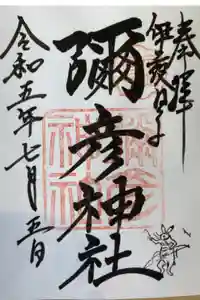 奉拝
伊夜日子
彌彦神社
令和五年七月五日